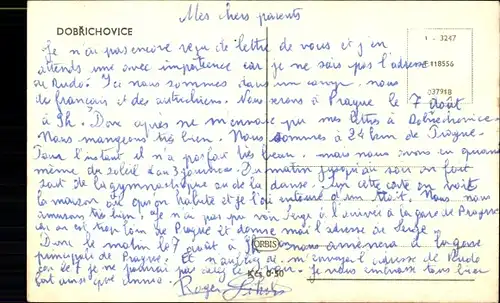 Mes chers parents
DOBŘICHOVICE
1 - 3247
E 118556
03791B
Je n'ai pas encore reçu de lettre de vous et j'en
attends une avec impatience car je ne sais pas l'adresse
de Rudo. Ici nous sommes dans un camp, nous
des français et des autrichiens. Nous serons à Prague le 7 Août
à 8h. Donc après ne m'envoie pas mes lettres à Dobřichovice.
Nous mangeons très bien. Nous sommes à 24 km de Prague.
Pour l'instant il n'a pas fait très beau, mais nous avons eu quand
même du soleil 2 ou 3 journées. Du matin jusqu'au soir on
fait de la gymnastique ou de la danse. Sur cette carte on voit
la maison où on habite et je l'ai entourée d'un trait. Nous nous
amusons très bien. Je n'ai pas pu voir Serge à l'arrivée à la gare de Prague
car on est trop loin de Prague et donne moi l'adresse de Serge
Donc le matin le 7 août à nous amènera à la gare
principale de Prague. Et n'oublie de m'envoyer l'adresse de Rudo
car le 7 je ne pourrai pas Je vous embrasse tous bien
fort ainsi que
Roger
ORBIS
Kčs 0·50